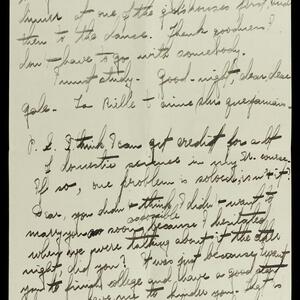 dinner at one of the girls houses first, and
then to the dance. Thank goodness I
don't have to go with somebody.
I must study. Good-night, dear, dear
La Belle t'aime plus que jamais.
P.S. I think I can get credit for a bit
of domestic science in my course.
If so, one problem is solved, isn't it?
Dear, you didn't think I didn't want to
marry you soon because I hesitated
when we were talking about it the other
night, did you? It was just because I want
you to finish college and have a good start
me to hinder you.